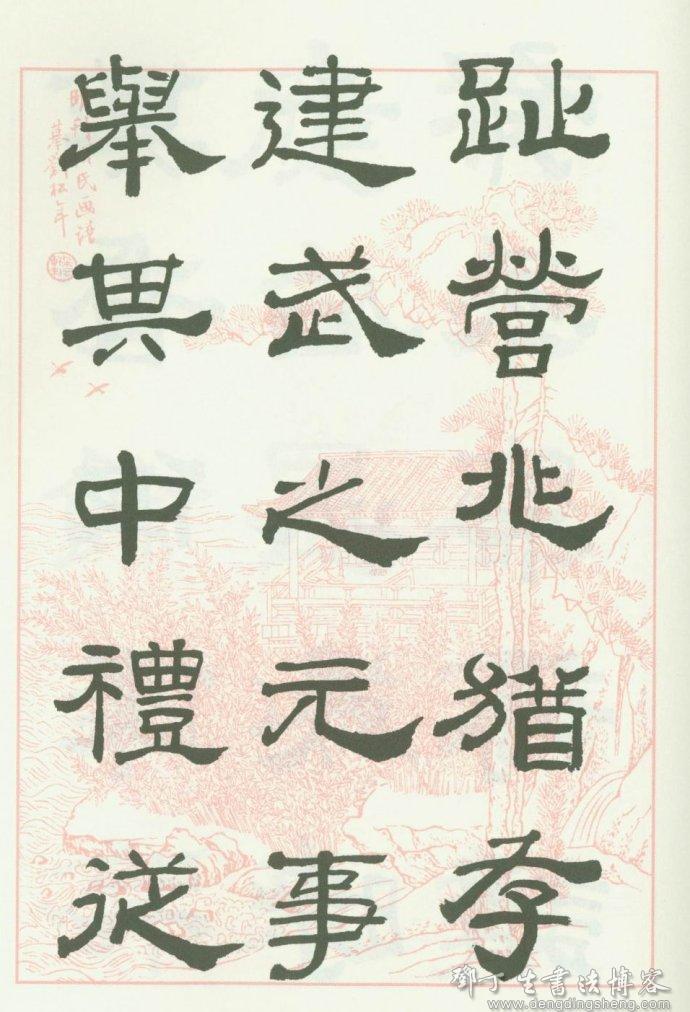 趾營兆猶存
建武之元事
舉其中禮從
氏画譜
摹劉松年
鄧丁生書法博客
www.dengdingsheng.com